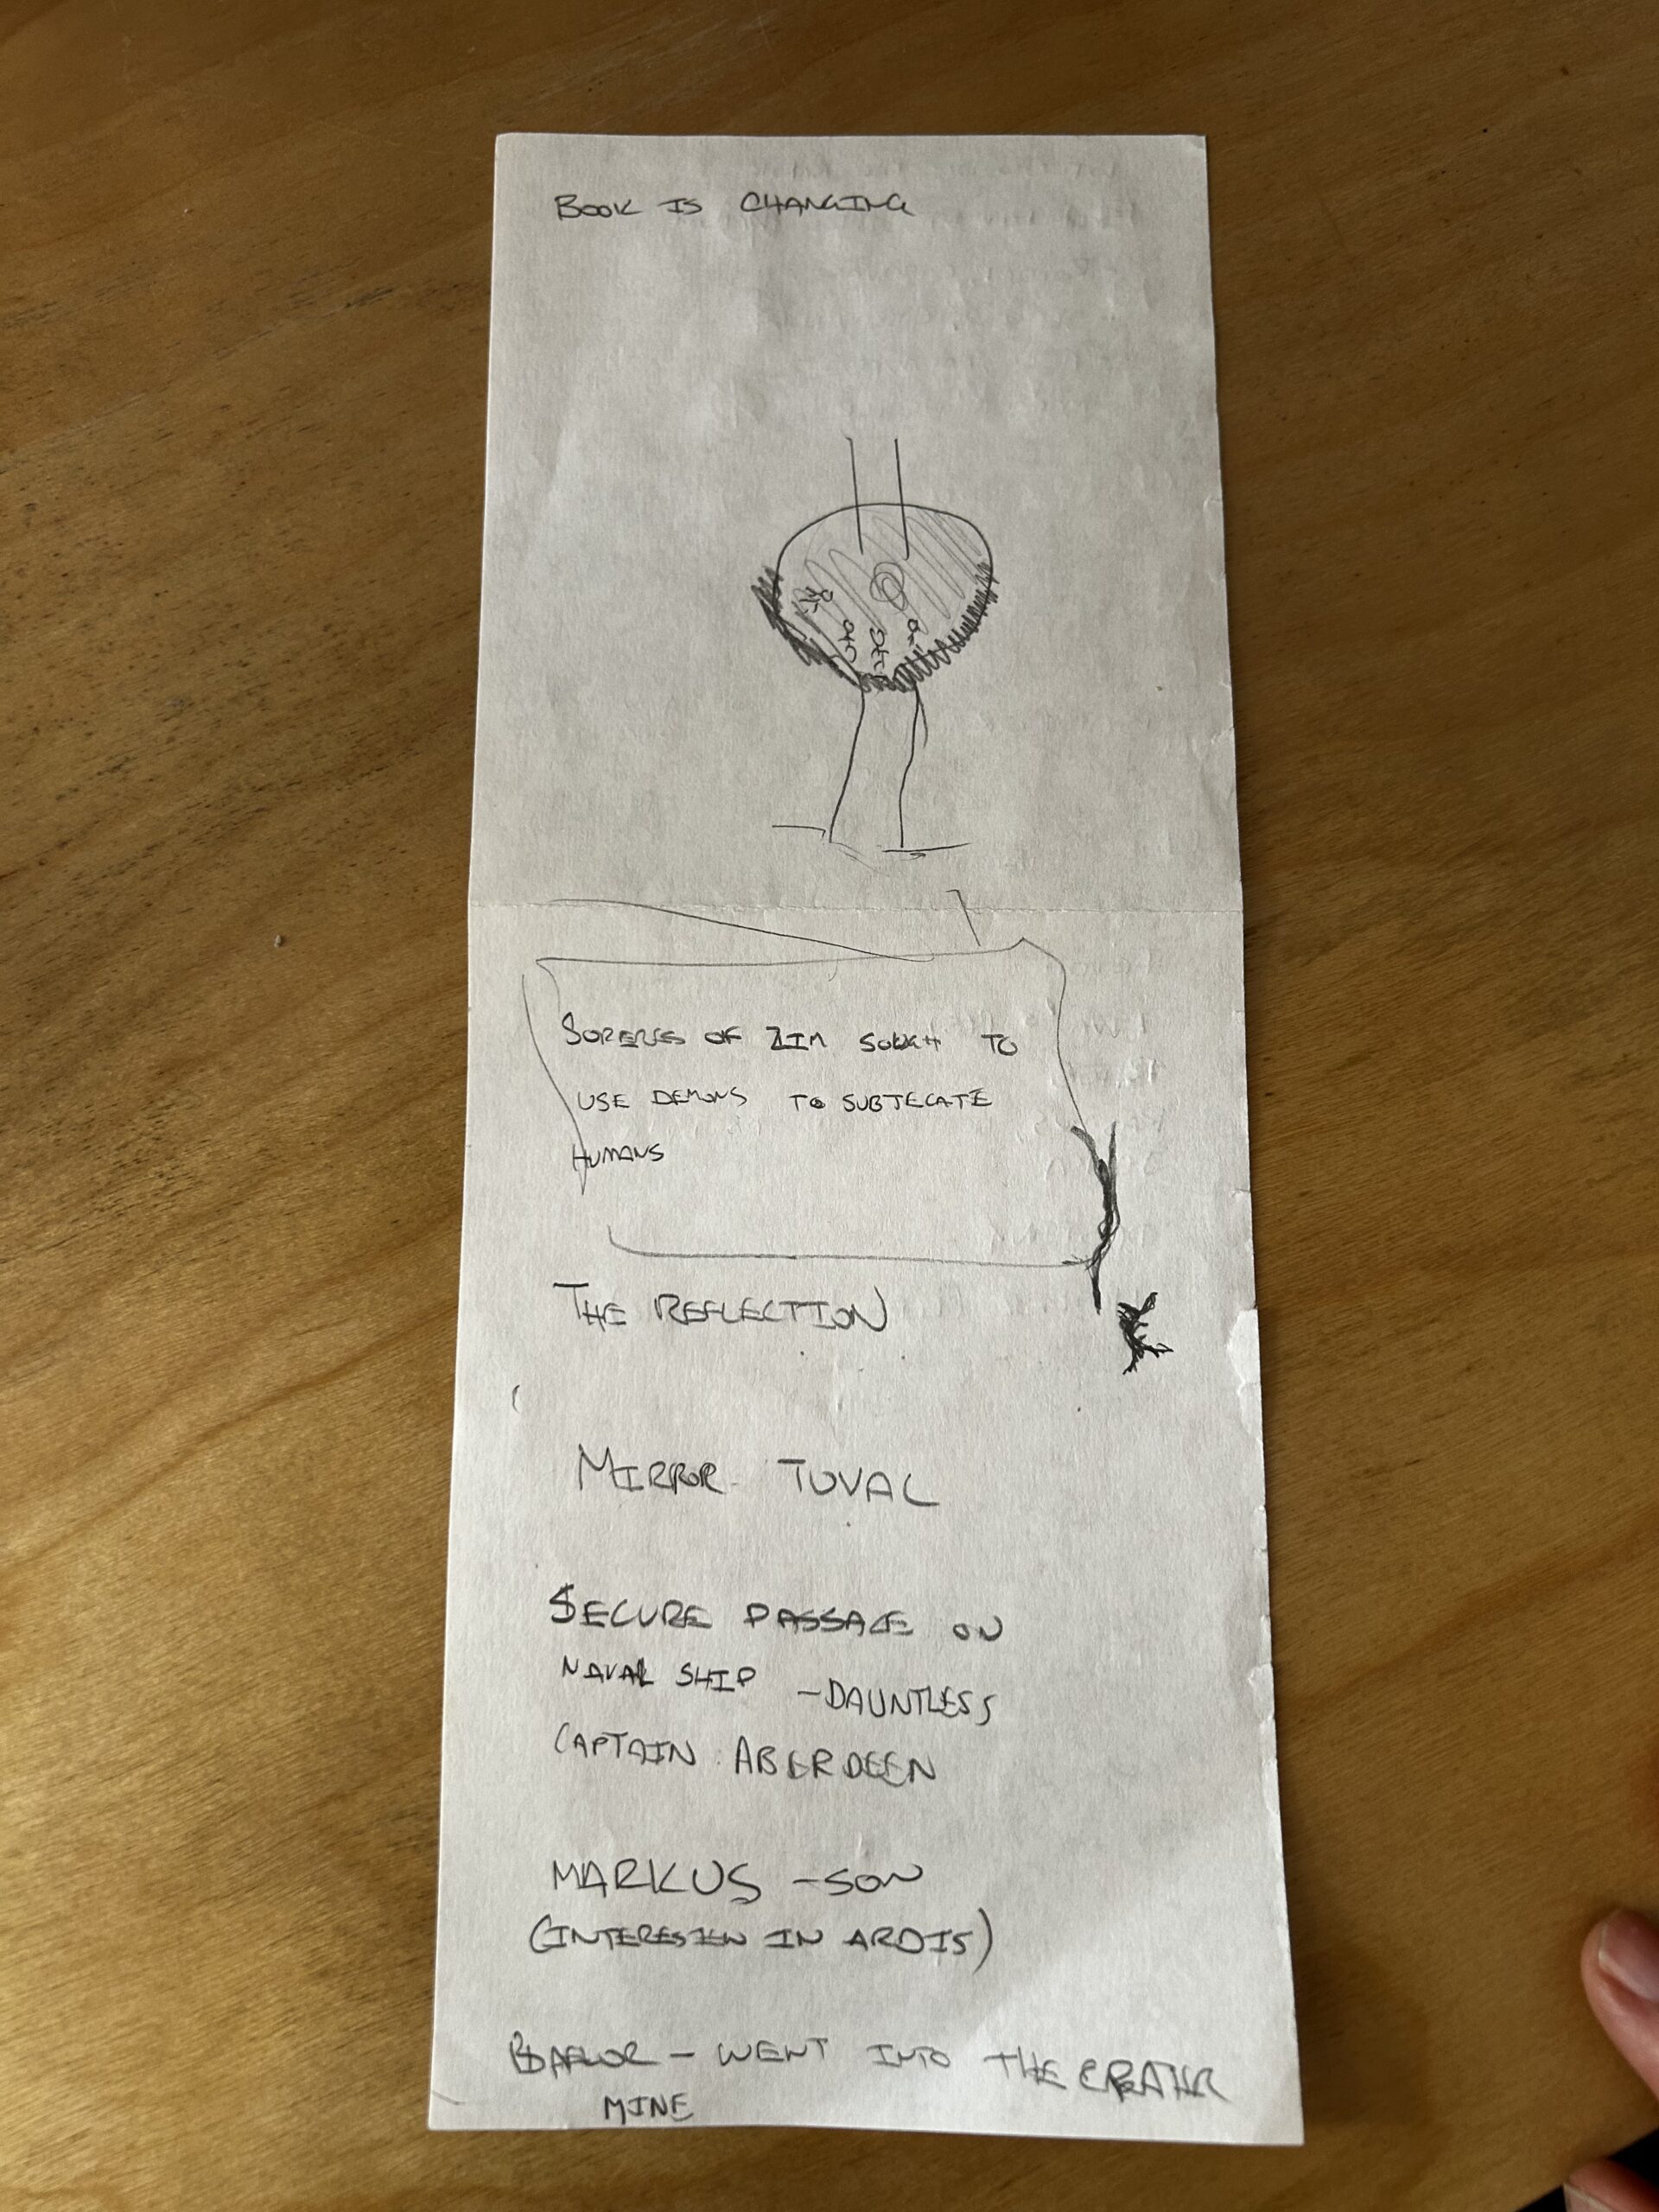 BOOK IS CHANGING
SORERES OF ZIM SOUGH TO
USE DEMONS TO SUBJECATE
HUMANS
THE REFLECTION
MIRROR TUVAL
SECURE PASSAGE ON
NAVAL SHIP - DAUNTLESS
CAPTAIN ABERDEEN
MARKUS - SON
IN ARDIS)
- WENT INTO THE
MINE